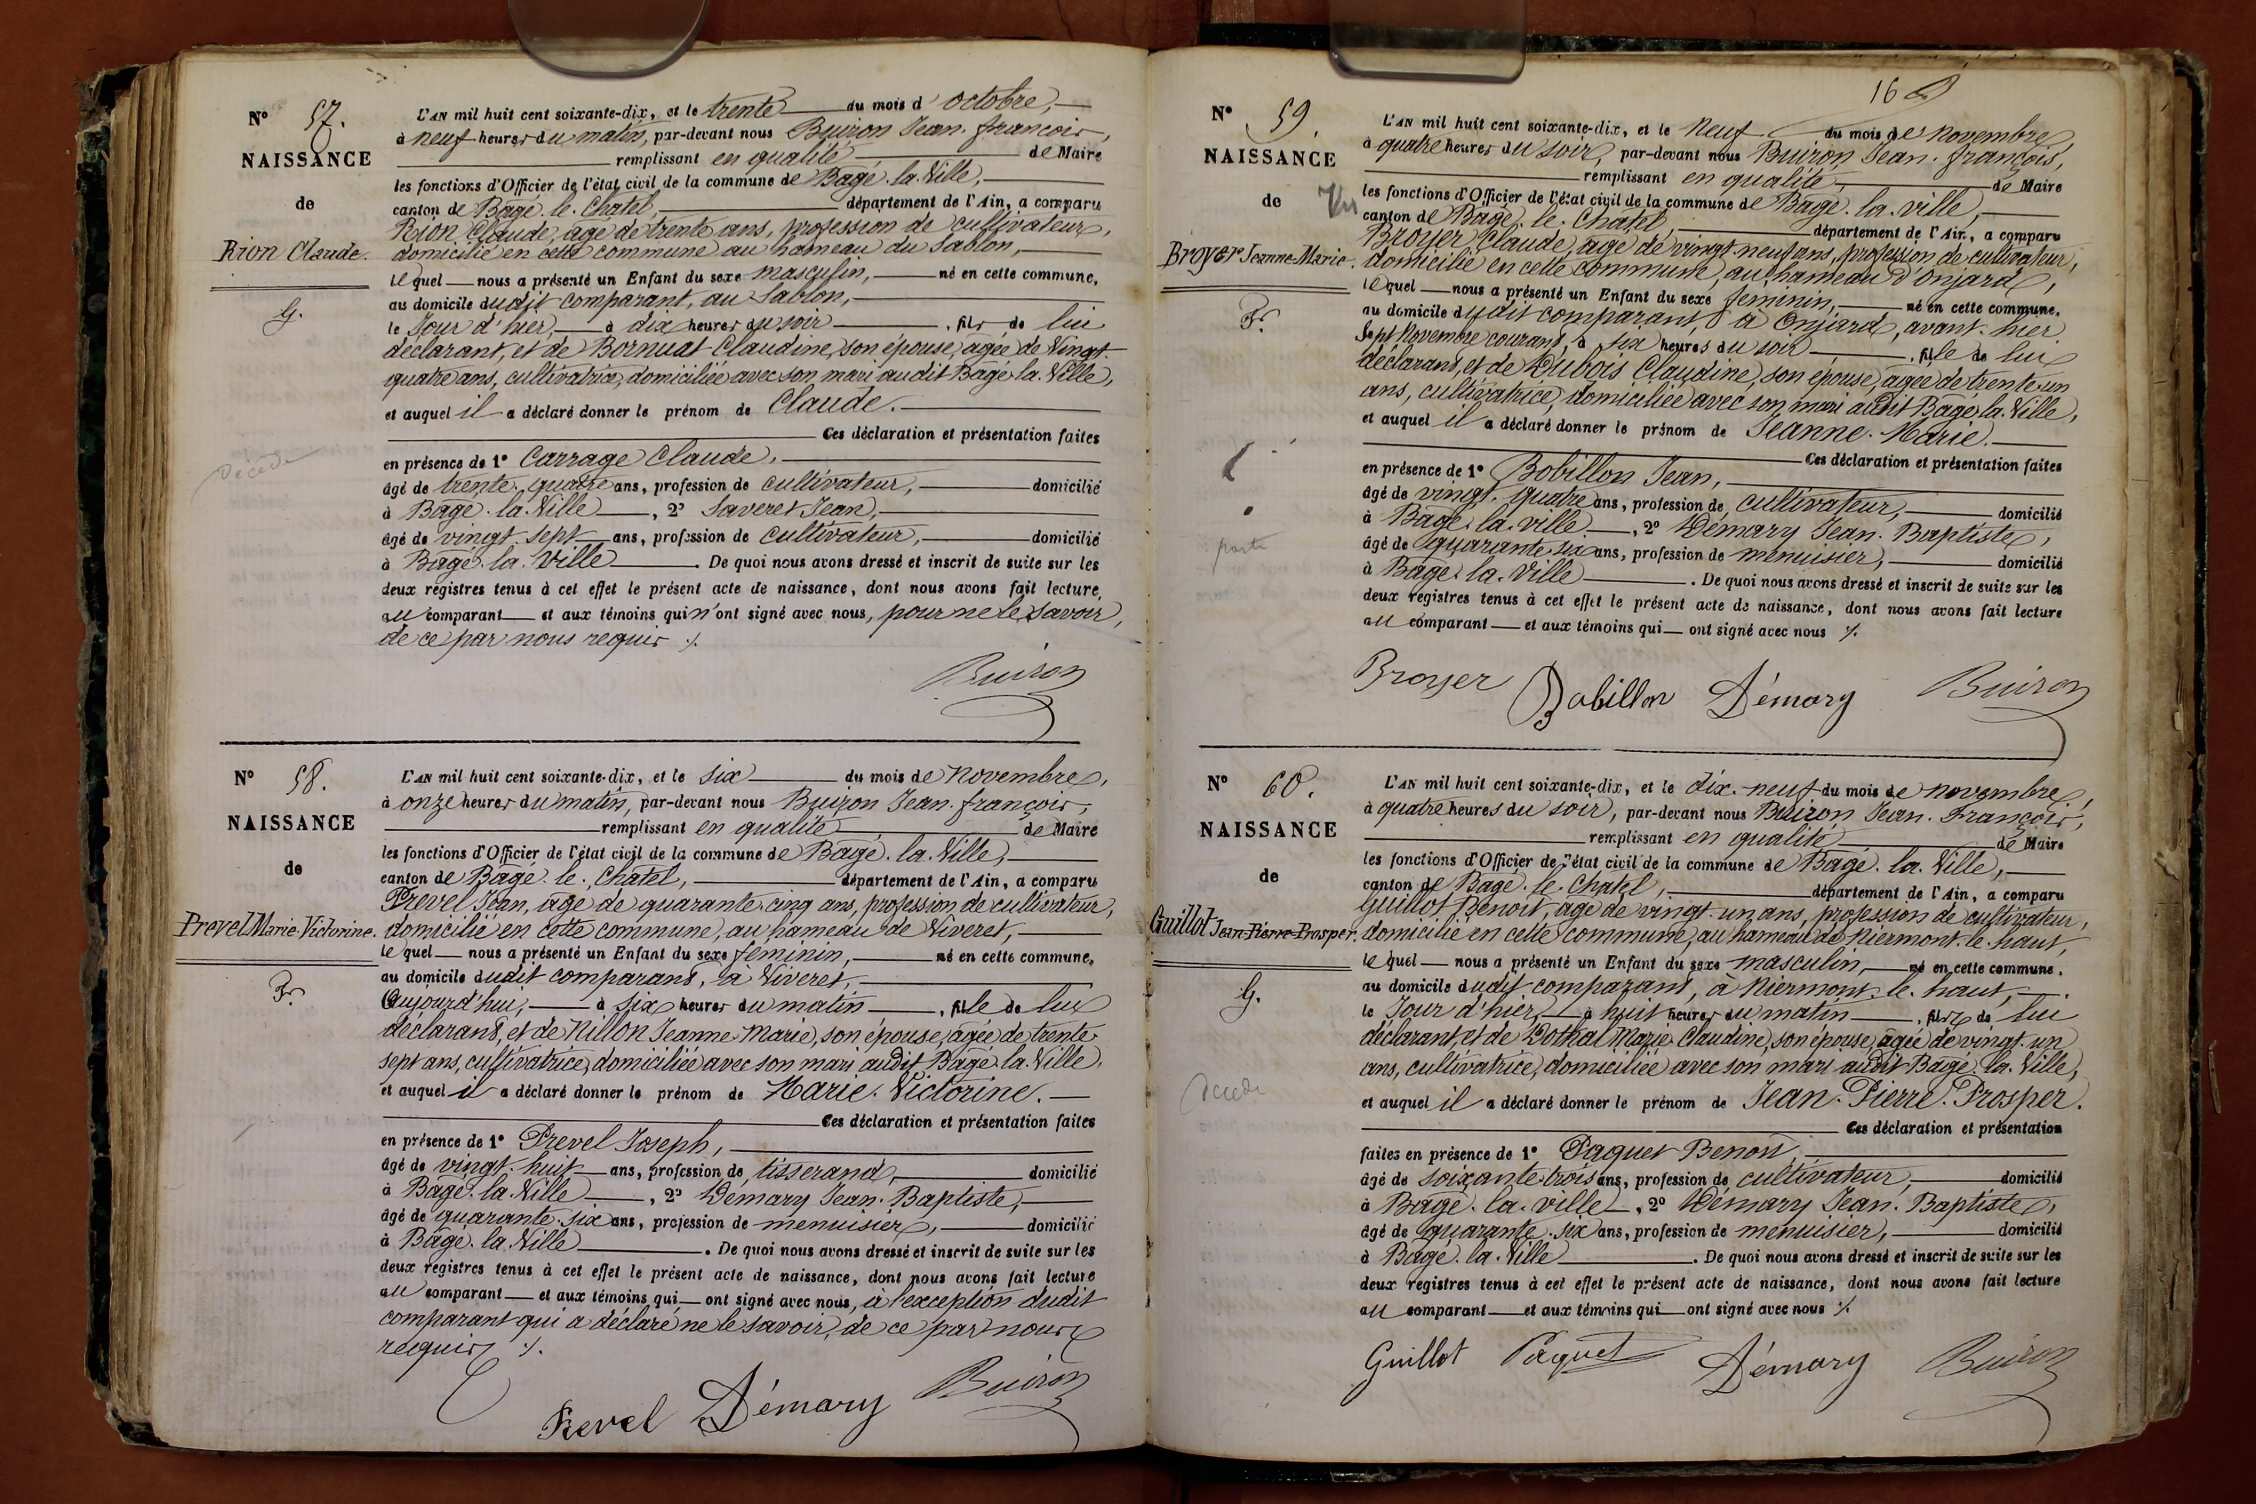 N° 57.
NAISSANCE
de
Rion Claude.
G.
Décédé
L'AN mil huit cent soixante-dix, et le trente du mois d'octobre,
à neuf heures du matin, par-devant nous Buiron Jean-françois,
remplissant en qualité de Maire
les fonctions d'Officier de l'état civil de la commune de Bagé-la-Ville,
canton de Bagé-le-Chatel, département de l'Ain, a comparu
Rion Claude, âgé de trente ans, profession de cultivateur,
domicilié en cette commune au hameau du Sablon,
lequel nous a présenté un Enfant du sexe masculin, né en cette commune,
au domicile dudit comparant, au Sablon,
le Jour d'hier, à dix heures du soir, fils de lui
déclarant, et de Bornuat Claudine, son épouse, agée de Vingt-
quatre ans, cultivatrice, domiciliée avec son mari audit Bagé-la-Ville,
et auquel il a déclaré donner le prénom de Claude.
Ces déclaration et présentation faites
en présence de 1° Carrage Claude,
âgé de trente-quatre ans, profession de cultivateur, domicilié
à Bagé-la-Ville, 2° Saveret Jean,
âgé de vingt-sept ans, profession de cultivateur, domicilié
à Bagé-la-Ville. De quoi nous avons dressé et inscrit de suite sur les
deux registres tenus à cet effet le présent acte de naissance, dont nous avons fait lecture,
au comparant et aux témoins qui n'ont signé avec nous, pour ne le savoir,
de ce par nous requis ./.
Buiron
N° 58.
NAISSANCE
de
Prevel Marie-Victorine.
F.
L'AN mil huit cent soixante-dix, et le six du mois de novembre,
à onze heures du matin, par-devant nous Buiron Jean-françois,
remplissant en qualité de Maire
les fonctions d'Officier de l'état civil de la commune de Bagé-la-Ville,
canton de Bagé-le-Chatel, département de l'Ain, a comparu
Prevel Jean, âgé de quarante-cinq ans, profession de cultivateur,
domicilié en cette commune, au hameau de Viveret,
lequel nous a présenté un Enfant du sexe féminin, né en cette commune,
au domicile dudit comparant, à Viveret,
aujourd'hui, à six heures du matin, fille de lui
déclarant, et de Nillon Jeanne-Marie, son épouse, agée de trente-
sept ans, cultivatrice, domiciliée avec son mari audit Bagé-la-Ville,
et auquel il a déclaré donner le prénom de Marie-Victorine.
Ces déclaration et présentation faites
en présence de 1° Prevel Joseph,
âgé de vingt-huit ans, profession de tisserand, domicilié
à Bagé-la-Ville, 2° Démary Jean-Baptiste,
âgé de quarante-six ans, profession de menuisier, domicilié
à Bagé-la-Ville. De quoi nous avons dressé et inscrit de suite sur les
deux registres tenus à cet effet le présent acte de naissance, dont nous avons fait lecture
au comparant et aux témoins qui ont signé avec nous, à l'exception dudit
comparant qui a déclaré ne le savoir, de ce par nous
requis ./.
Prevel Démary Buiron
16
N° 59.
NAISSANCE
de
Broyer Jeanne-Marie.
F.
L'AN mil huit cent soixante-dix, et le Neuf du mois de novembre,
à quatre heures du soir, par-devant nous Buiron Jean-françois,
remplissant en qualité de Maire
les fonctions d'Officier de l'état civil de la commune de Bagé-la-ville,
canton de Bagé-le-Chatel, département de l'Ain, a comparu
Broyer Claude, âgé de vingt-neuf ans, profession de cultivateur,
domicilié en cette commune, au hameau d'Onjard,
lequel nous a présenté un Enfant du sexe feminin, né en cette commune,
au domicile dudit comparant, à Onjard, avant-hier
Sept Novembre courant, à six heures du soir, fille de lui
déclarant, et de Dubois Claudine, son épouse, agée de trente-un
ans, cultivatrice, domiciliée avec son mari audit Bagé-la-Ville,
et auquel il a déclaré donner le prénom de Jeanne-Marie.
Ces déclaration et présentation faites
en présence de 1° Bobillon Jean,
âgé de vingt-quatre ans, profession de cultivateur, domicilié
à Bagé-la-ville, 2° Démary Jean-Baptiste,
âgé de quarante-six ans, profession de menuisier, domicilié
à Bagé-la-Ville. De quoi nous avons dressé et inscrit de suite sur les
deux registres tenus à cet effet le présent acte de naissance, dont nous avons fait lecture
au comparant et aux témoins qui ont signé avec nous ./.
Broyer Bobillon Démary Buiron
N° 60.
NAISSANCE
de
Guillot Jean-Pierre-Prosper.
G.
Décédé
L'AN mil huit cent soixante-dix, et le dix-neuf du mois de novembre,
à quatre heures du soir, par-devant nous Buiron Jean-François,
remplissant en qualité de Maire
les fonctions d'Officier de l'état civil de la commune de Bagé-la-Ville,
canton de Bagé-le-Chatel, département de l'Ain, a comparu
Guillot Benoît, âgé de vingt-un ans, profession de cultivateur,
domicilié en cette commune, au hameau de Niermont-le-haut,
lequel nous a présenté un Enfant du sexe masculin, né en cette commune,
au domicile dudit comparant, à Niermont-le-haut,
le Jour d'hier, à huit heures du matin, fils de lui
déclarant, et de Dothal Marie-Claudine, son épouse, agée de vingt-un
ans, cultivatrice, domiciliée avec son mari audit Bagé-la-Ville,
et auquel il a déclaré donner le prénom de Jean-Pierre-Prosper.
Ces déclaration et présentation
faites en présence de 1° Paquet Benoit,
âgé de soixante-trois ans, profession de cultivateur, domicilié
à Bagé-la-ville, 2° Démary Jean-Baptiste,
âgé de quarante-six ans, profession de menuisier, domicilié
à Bagé-la-Ville. De quoi nous avons dressé et inscrit de suite sur les
deux registres tenus à cet effet le présent acte de naissance, dont nous avons fait lecture
au comparant et aux témoins qui ont signé avec nous ./.
Guillot Paquet Démary Buiron